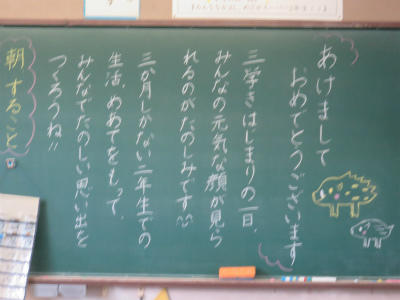 あけまして
おめでとうございます
三学きはじまりの一日、
みんなの元気な顔が見ら
れるのがたのしみです
三か月しかない二年生での
生活、めあてをもって、
みんなでたのしい思い出を
つくろうね!!
朝すること